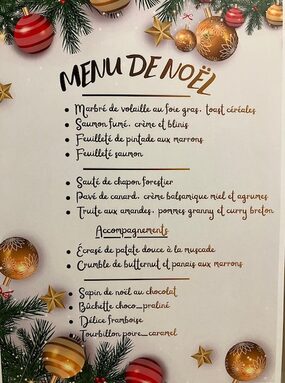 MENU DE NOËL
Marbré de volaille au foie gras, toast céréales
Saumon fumé, crème et blinis
Feuilleté de pintade aux marrons
Feuilleté saumon
Sauté de chapon forestier
Pavé de canard, crème balsamique miel et agrumes
Truite aux amandes, pommes granny et curry breton
Accompagnements
Écrasé de patate douce à la muscade
Crumble de butternut et panais aux marrons
Sapin de noël au chocolat
Bûchette choco_praliné
Délice framboise
Tourbillon poire_caramel